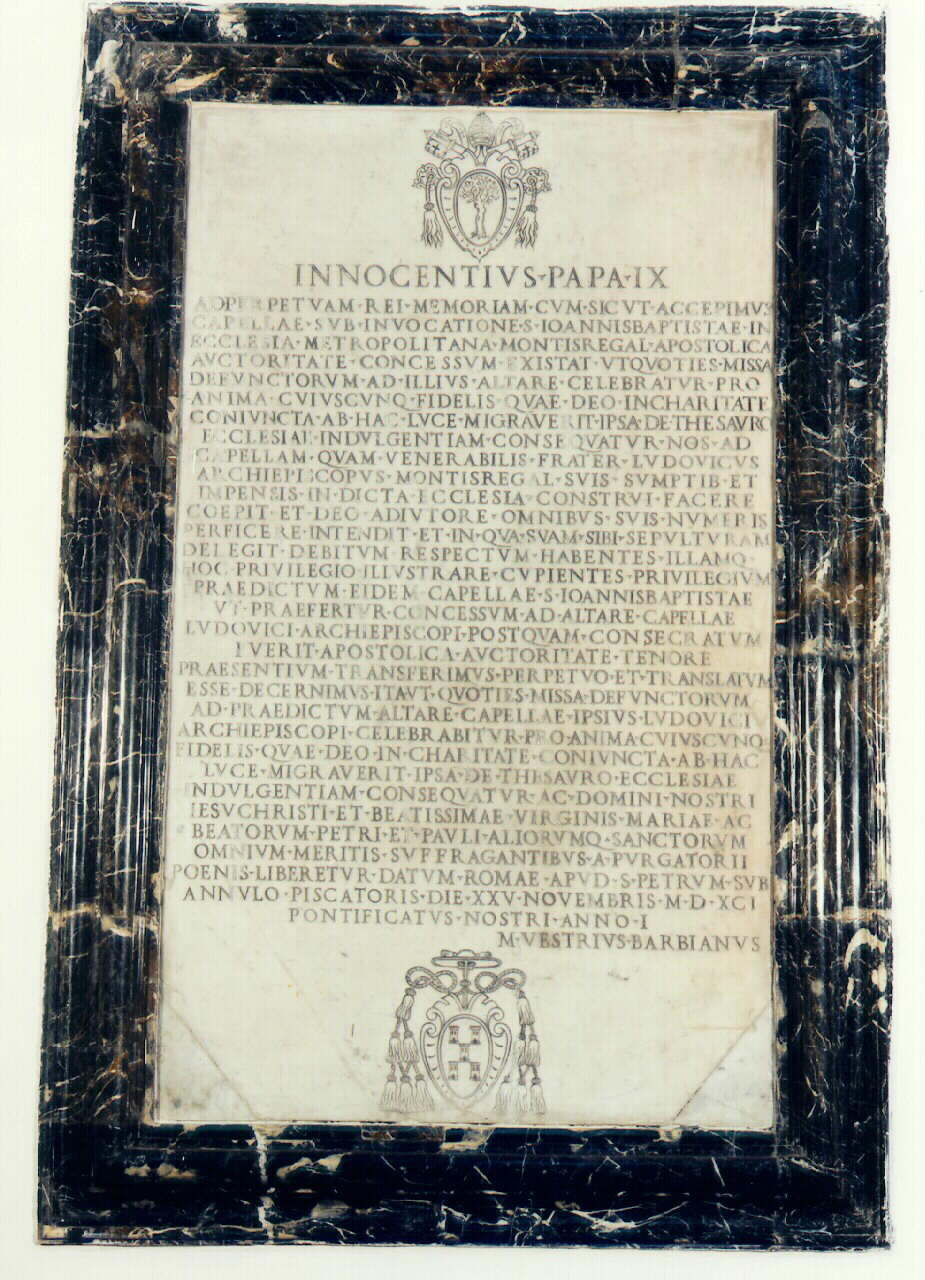 INNOCENTIVS·PAPA·IX
ADPERPETVAM·REI·MEMORIAM·CVM·SICVT·ACCEPIMVS
CAPELLAE·SVB·INVOCATIONE·S·IOANNISBAPTISTAE·IN
ECCLESIA·METROPOLITANA·MONTISREGAL·APOSTOLICA
AVCTORITATE·CONCESSVM·EXISTAT·VTQVOTIES·MISSA
DEFVNCTORVM·AD·ILLIVS·ALTARE·CELEBRATVR·PRO
ANIMA·CVIVSCVNQ·FIDELIS·QVAE·DEO·INCHARITATE
CONIVNCTA·AB·HAC·LVCE·MIGRAVERIT·IPSA·DE·THESAVRO
ECCLESIAE·INDVLGENTIAM·CONSEQVATVR·NOS·AD
CAPELLAM·QVAM·VENERABILIS·FRATER·LVDOVICVS
ARCHIEPISCOPVS·MONTISREGAL·SVIS·SVMPTIB·ET
IMPENSIS·IN·DICTA·ECCLESIA·CONSTRVI·FACERE
COEPIT·ET·DEO·ADIVTORE·OMNIBVS·SVIS·NVMERIS
PERFICERE·INTENDIT·ET·IN·QVA·SVAM·SIBI·SEPVLTVRAM
DELEGIT·DEBITVM·RESPECTVM·HABENTES·ILLAMQ·
HOC·PRIVILEGIO·ILLVSTRARE·CVPIENTES·PRIVILEGIVM
PRAEDICTVM·EIDEM·CAPELLAE·S·IOANNISBAPTISTAE
VT·PRAEFERTVR·CONCESSVM·AD·ALTARE·CAPELLAE
LVDOVICI·ARCHIEPISCOPI·POSTQVAM·CONSECRATVM
FVERIT·APOSTOLICA·AVCTORITATE·TENORE
PRAESENTIVM·TRANSFERIMVS·PERPETVO·ET·TRANSLATVM
ESSE·DECERNIMVS·ITAVT·QVOTIES·MISSA·DEFVNCTORVM
AD·PRAEDICTVM·ALTARE·CAPELLAE·IPSIVS·LVDOVICI
ARCHIEPISCOPI·CELEBRABITVR·PRO·ANIMA·CVIVSCVNQ·
FIDELIS·QVAE·DEO·IN·CHARITATE·CONIVNCTA·AB·HAC
LVCE·MIGRAVERIT·IPSA·DE·THESAVRO·ECCLESIAE
INDVLGENTIAM·CONSEQVATVR·AC·DOMINI·NOSTRI
IESVCHRISTI·ET·BEATISSIMAE·VIRGINIS·MARIAE·AC
BEATORVM·PETRI·ET·PAVLI·ALIORVMQ·SANCTORVM
OMNIVM·MERITIS·SVFFRAGANTIBVS·A·PVRGATORII
POENIS·LIBERETVR·DATVM·ROMAE·APVD·S·PETRVM·SVB
ANNVLO·PISCATORIS·DIE·XXV·NOVEMBRIS·M·D·XCI
PONTIFICATVS·NOSTRI·ANNO·I
M·VESTRIVS·BARBIANVS